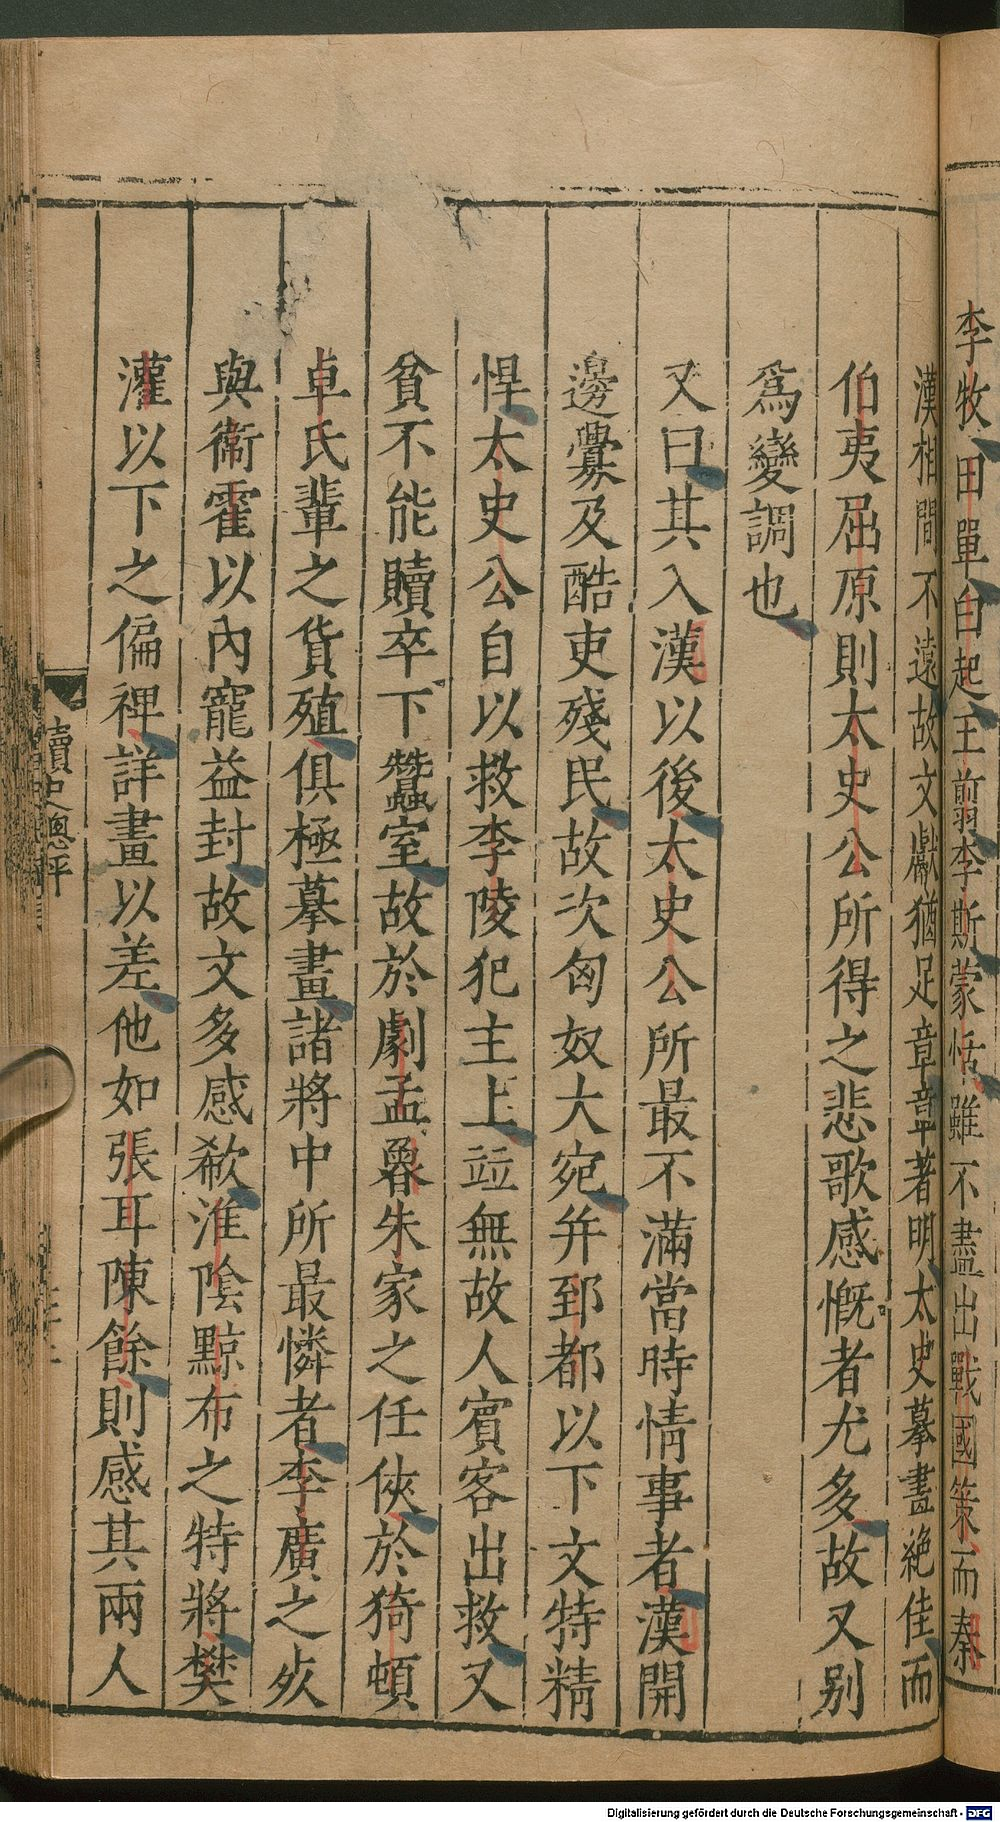 李牧田單白起王翦李斯蒙恬雖不盡出戰國策而秦
漢相間不遠故文獻猶足章章著明太史摹畫絶佳而
伯夷屈原則太史公所得之悲歌感慨者尤多故又别
爲變調也
又曰其入漢以後太史公所最不滿當時情事者漢開
邊釁及酷吏殘民故次匈奴大宛并郅都以下文特精
悍太史公自以救李陵犯主上竝無故人賓客出救又
貧不能贖卒下蠶室故於劇孟魯朱家之任俠於猗頓
卓氏輩之貨殖俱極摹畫諸將中所最憐者李廣之死
與衞霍以內寵益封故文多感欷淮陰黥布之特將樊
灌以下之偏裨詳畫以差他如張耳陳餘則感其兩人
讀史總評
Digitalisierung gefördert durch die Deutsche Forschungsgemeinschaft - DFG